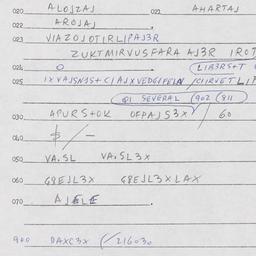 020 ALOJZAJ 021 AHARTAJ
022 AROJAJ
023 VIAZOJOTIRLIPAJ3R
ZUKTMIRVUSFARA AJ3R IROT
024 O LIB3RS+T
025 IXVAJSNJS+CIAJXVEDGIFFIN /CIIRVET LIP
QI SEVERAL (902 (811
030 APURS+OK OFPAJS3X / 60
$/-
050 VA.SL VA.SL3X
060 G8EJL3X G8EJL3XLAX
070 AJELE
900 DAXC3X (/216030